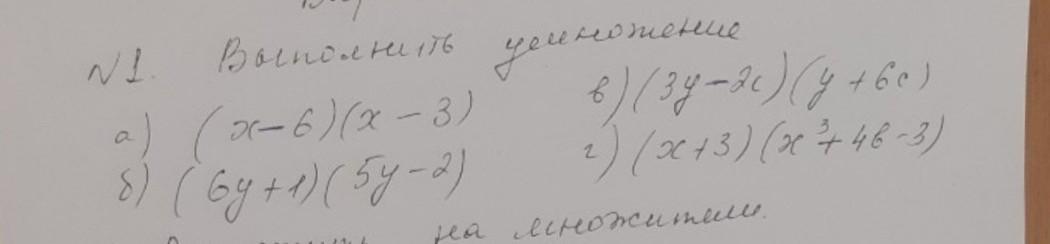 №1. Выполнить умножение
а) (x-6)(x-3)
б) (6y+1)(5y-2)
в) (3y-2c)(y+6c)
г) (x+3)(x³+4в-3)
на множители.